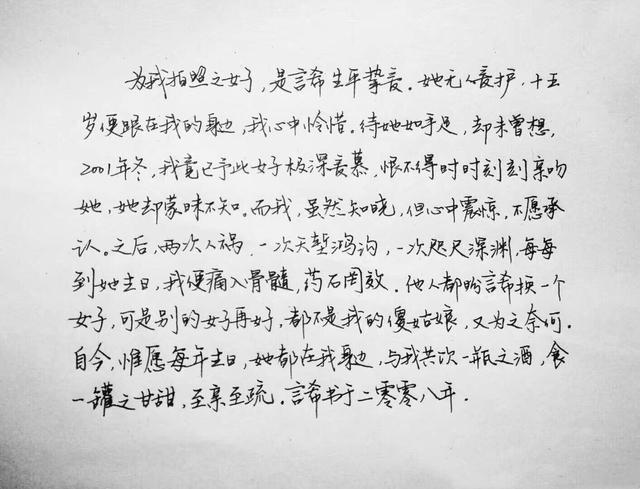 为我拍照之女子，是言希生平挚爱。她无人爱护，十五
岁便跟在我的身边，我心中怜惜。待她如手足，却未曾想，
2001年冬，我竟已予此女子极深爱慕，恨不得时时刻刻亲吻
她，她却蒙昧不知。而我，虽然知晓，但心中震惊，不愿承
认。之后，两次人祸，一次天堑鸿沟，一次咫尺深渊，每每
到她生日，我便痛入骨髓，药石罔效。他人都盼言希换一个
女子，可是别的女子再好，都不是我的傻姑娘，又为之奈何。
自今，惟愿每年生日，她都在我身边，与我共饮一瓶之酒，食
一罐之甘甜，至亲至疏。言希书于二零零八年.